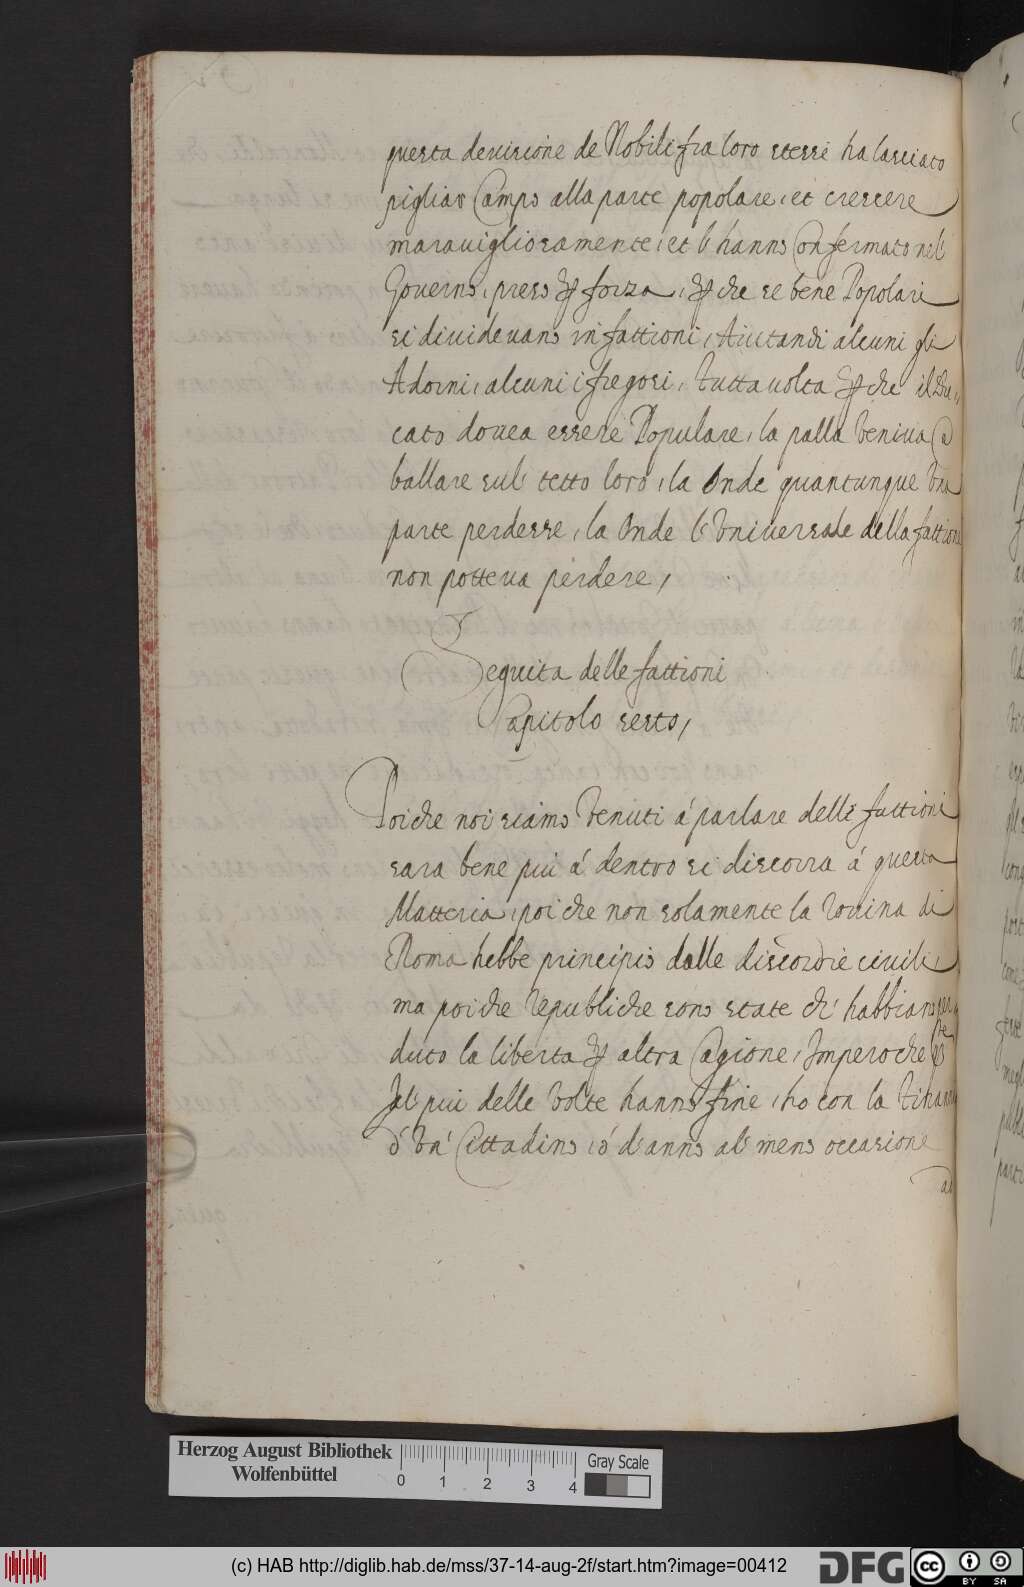 questa deuisione de Nobili fra loro stessi ha lasciato
pigliar Campo alla parte popolare, et crescere
marauigliosamente, et l'hanno Confermato nel
Gouerno, preso ꝑ forza, ꝑ che se bene Popolari
si diuideuano in fattioni, Aiutandi alcuni gli
Adorni, alcuni i fregosi, Tutta uolta ꝑ che il Du,,
cato douea essere Populare, la palla Veniua a
ballare sul' tetto loro, la Onde quantunque Una
parte perdesse, la Onde l'Uniuersale della fattione
non potteua perdere,
Seguita delle fattioni
Capitolo sesto,
Poiche noi siamo Venuti á parlare delle fattioni
sara bene piú á dentro si discorra á questa
Matteria, poi che non solamente la rouina di
Roma hebbe principio dalle discordie ciuili,
ma poiche Republiche sono state ch' habbiano per
duto la liberta ꝑ altra Cagione, Imperoche
Il' piu delle Volte hanno fine, ho con la Tirannia
d' Un' Cittadino, ó d'anno al' meno occasione